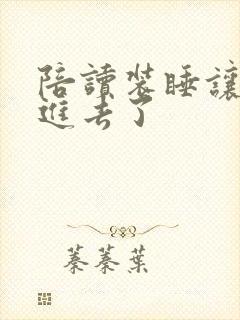 陪讀装睡讓
進去了
蓁蓁葉